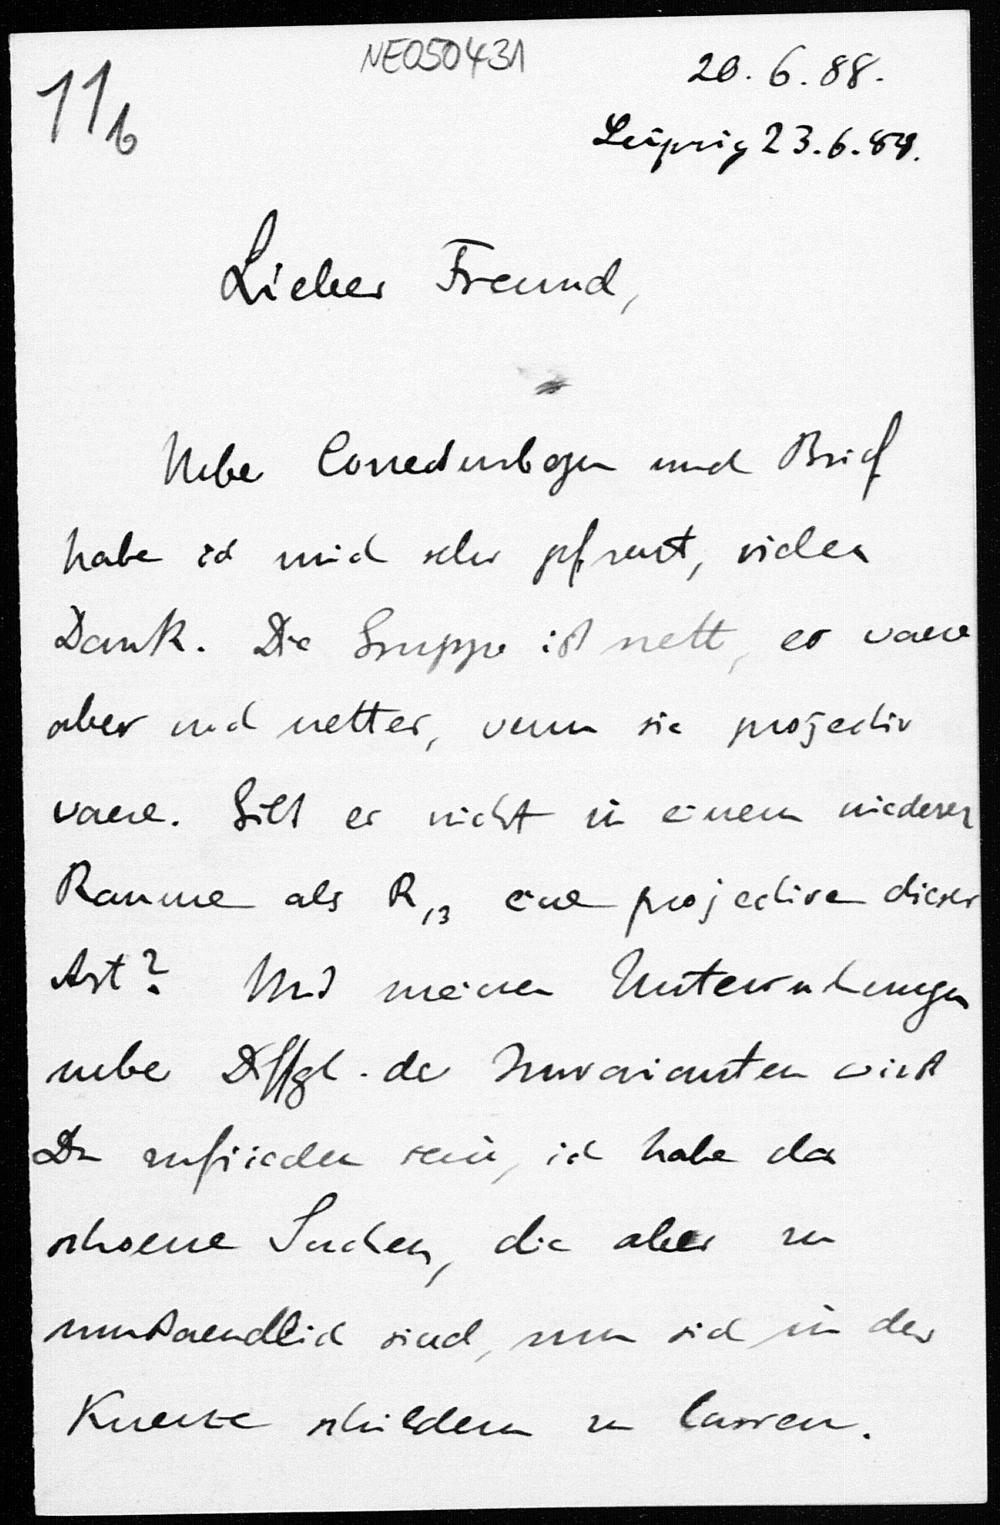 NE050431
11b
20. 6. 88.
Leipzig 23.6.88.
Lieber Freund,
Ueber Correcturbogen und Brief
habe ich mich sehr gefreut, vielen
Dank. Die Gruppe ist nett, es waere
aber noch netter, wenn sie projectiv
waere. Gibt es nicht in einem niederen
Raume als R13 eine projective dieser
Art? Mit meinen Untersuchungen
uebe Dffgl. der Invarianten wirst
Du zufrieden sein, ich habe da
schoene Sachen, die aber zu
umstaendlich sind, um sich in der
Kuerze schildern zu lassen.